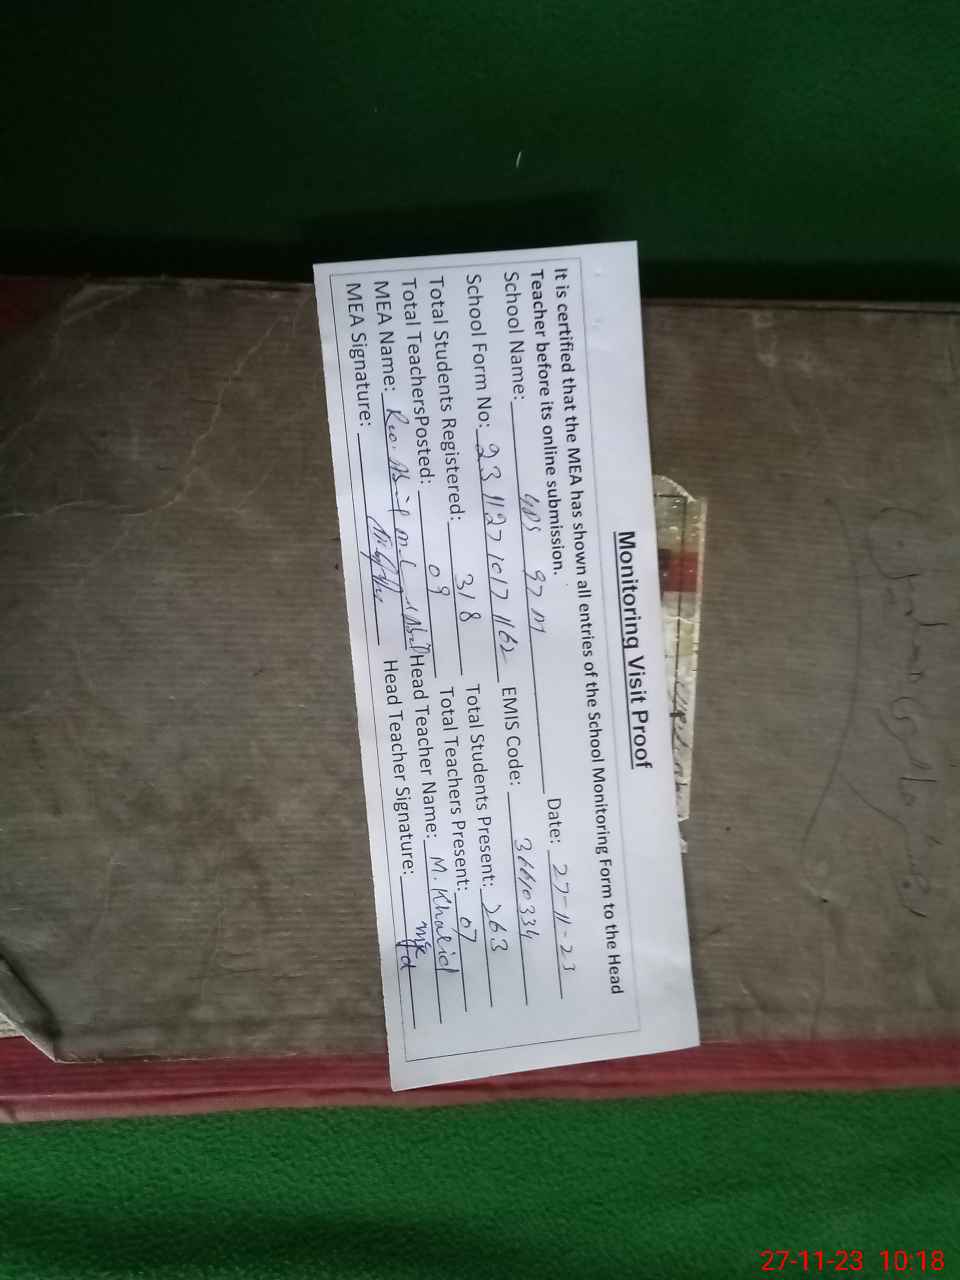 Monitoring Visit Proof
It is certified that the MEA has shown all entries of the School Monitoring Form to the Head
Teacher before its online submission.
School Name: GPS 97 M Date: 27-11-23
School Form No: EMIS Code:
Total Students Registered: 318 Total Students Present: 263
Total TeachersPosted: 09 Total Teachers Present: 07
MEA Name: Head Teacher Name: M. Khalid
MEA Signature: Head Teacher Signature:
27-11-23 10:18